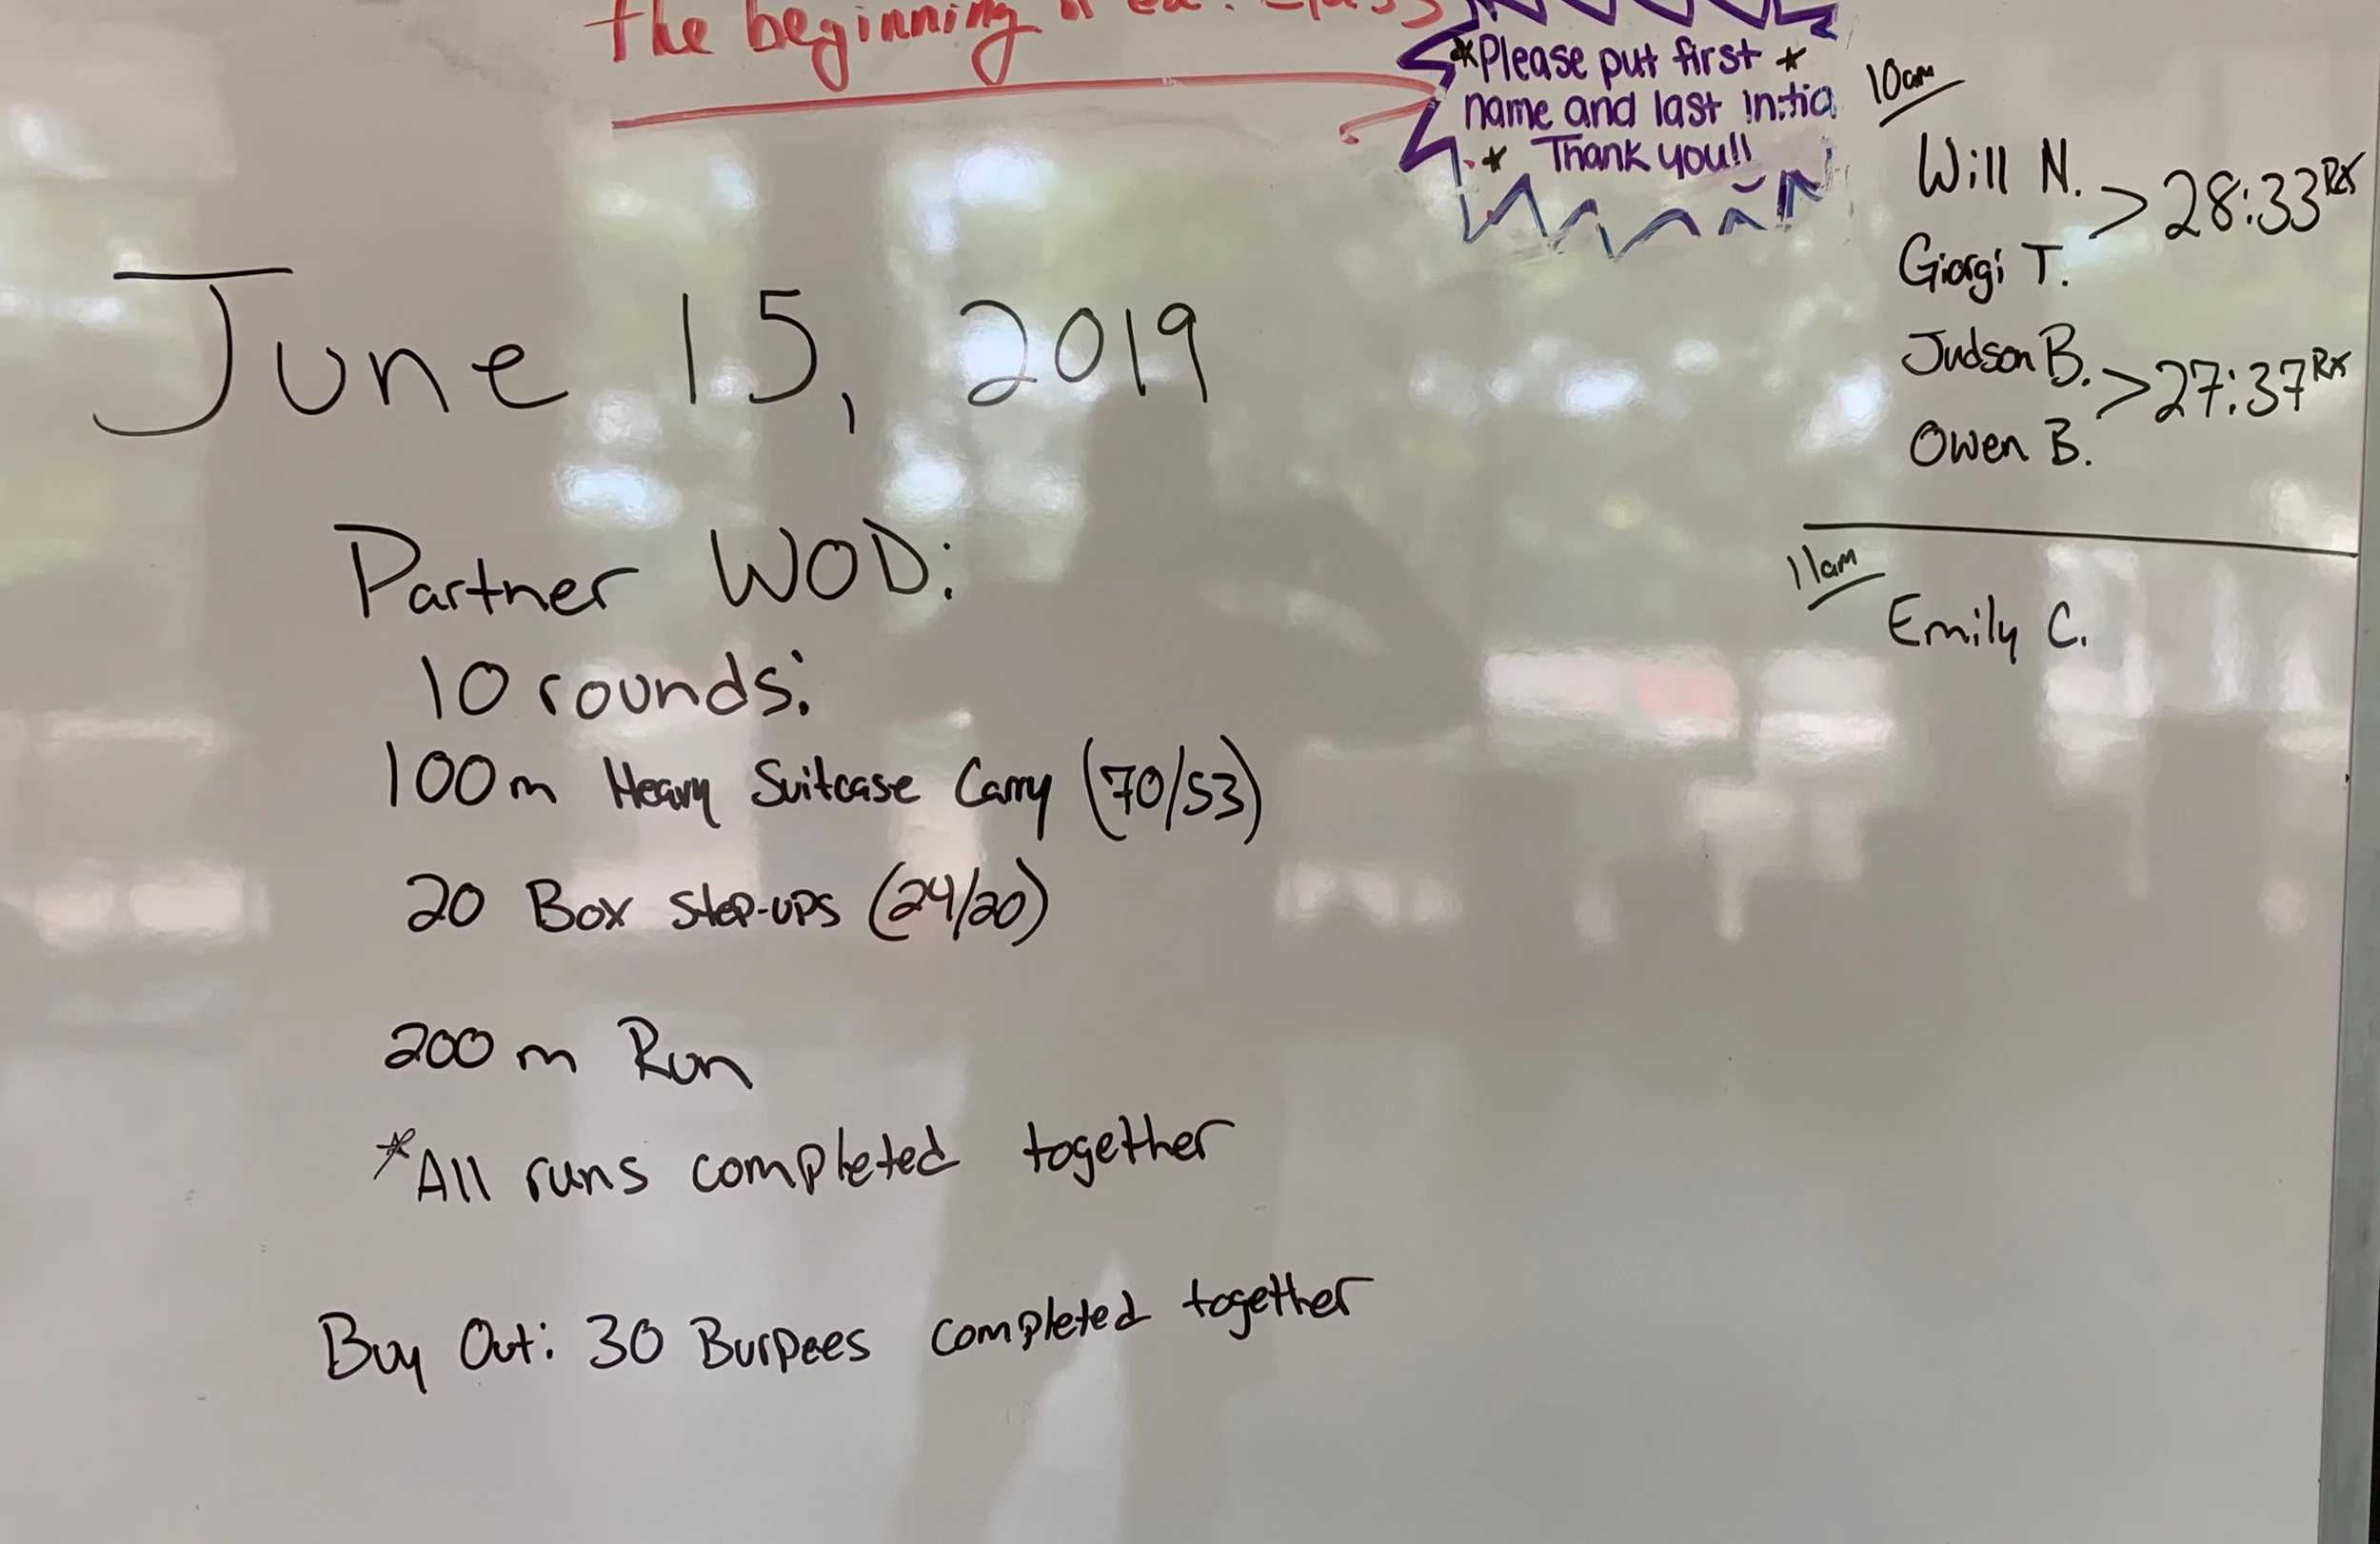 the beginning
*Please put first *
name and last initia
* Thank you!!
June 15, 2019
Partner WOD:
10 rounds:
100m Heavy Suitcase Carry (70/53)
20 Box step-ups (24/20)
200m Run
*All runs completed together
Buy Out: 30 Burpees completed together
10am
Will N.
> 28:33 Rx
Giorgi T.
Judson B.
> 27:37 Rx
Owen B.
11am
Emily C.